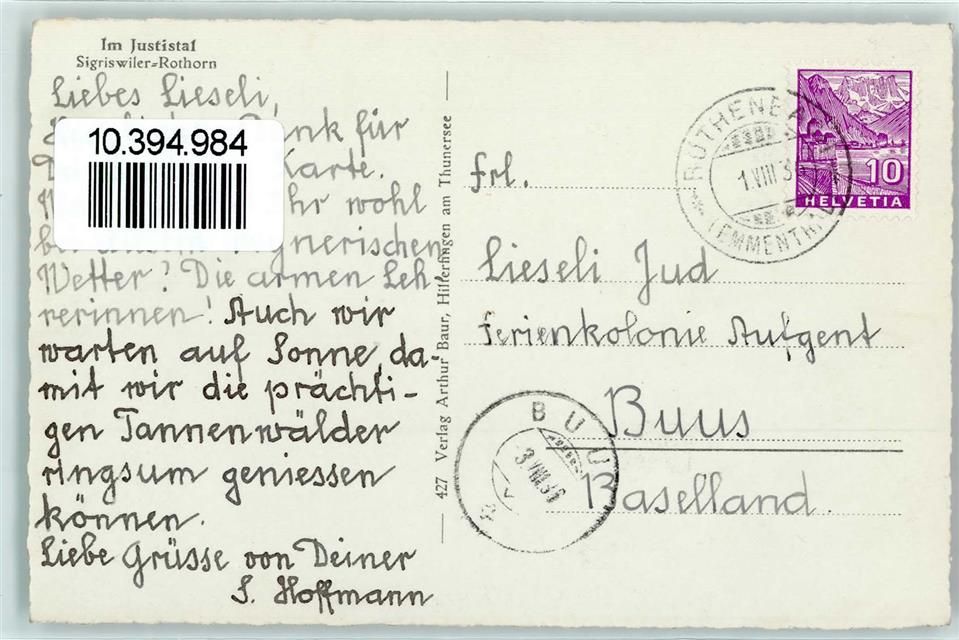 Im Justistal
Sigriswiler-Rothorn
Liebes Lieseli,
Dank für
Karte.
10.394.984
wohl
Wetter? Die armen Leh-
rerinnen! Auch wir
warten auf Sonne, da-
mit wir die prächti-
gen Tannenwälder
ringsum geniessen
können.
Liebe Grüsse von Deiner
S. Hoffmann
427 Verlag Arthur Baur, Hilterfingen am Thunersee
RÖTHENBACH
1.VIII.36
(EMMENTHAL)
10
HELVETIA
Frl.
Lieseli Jud
Ferienkolonie Aufgent
Buus
Baselland
BUUS
3.VIII.36